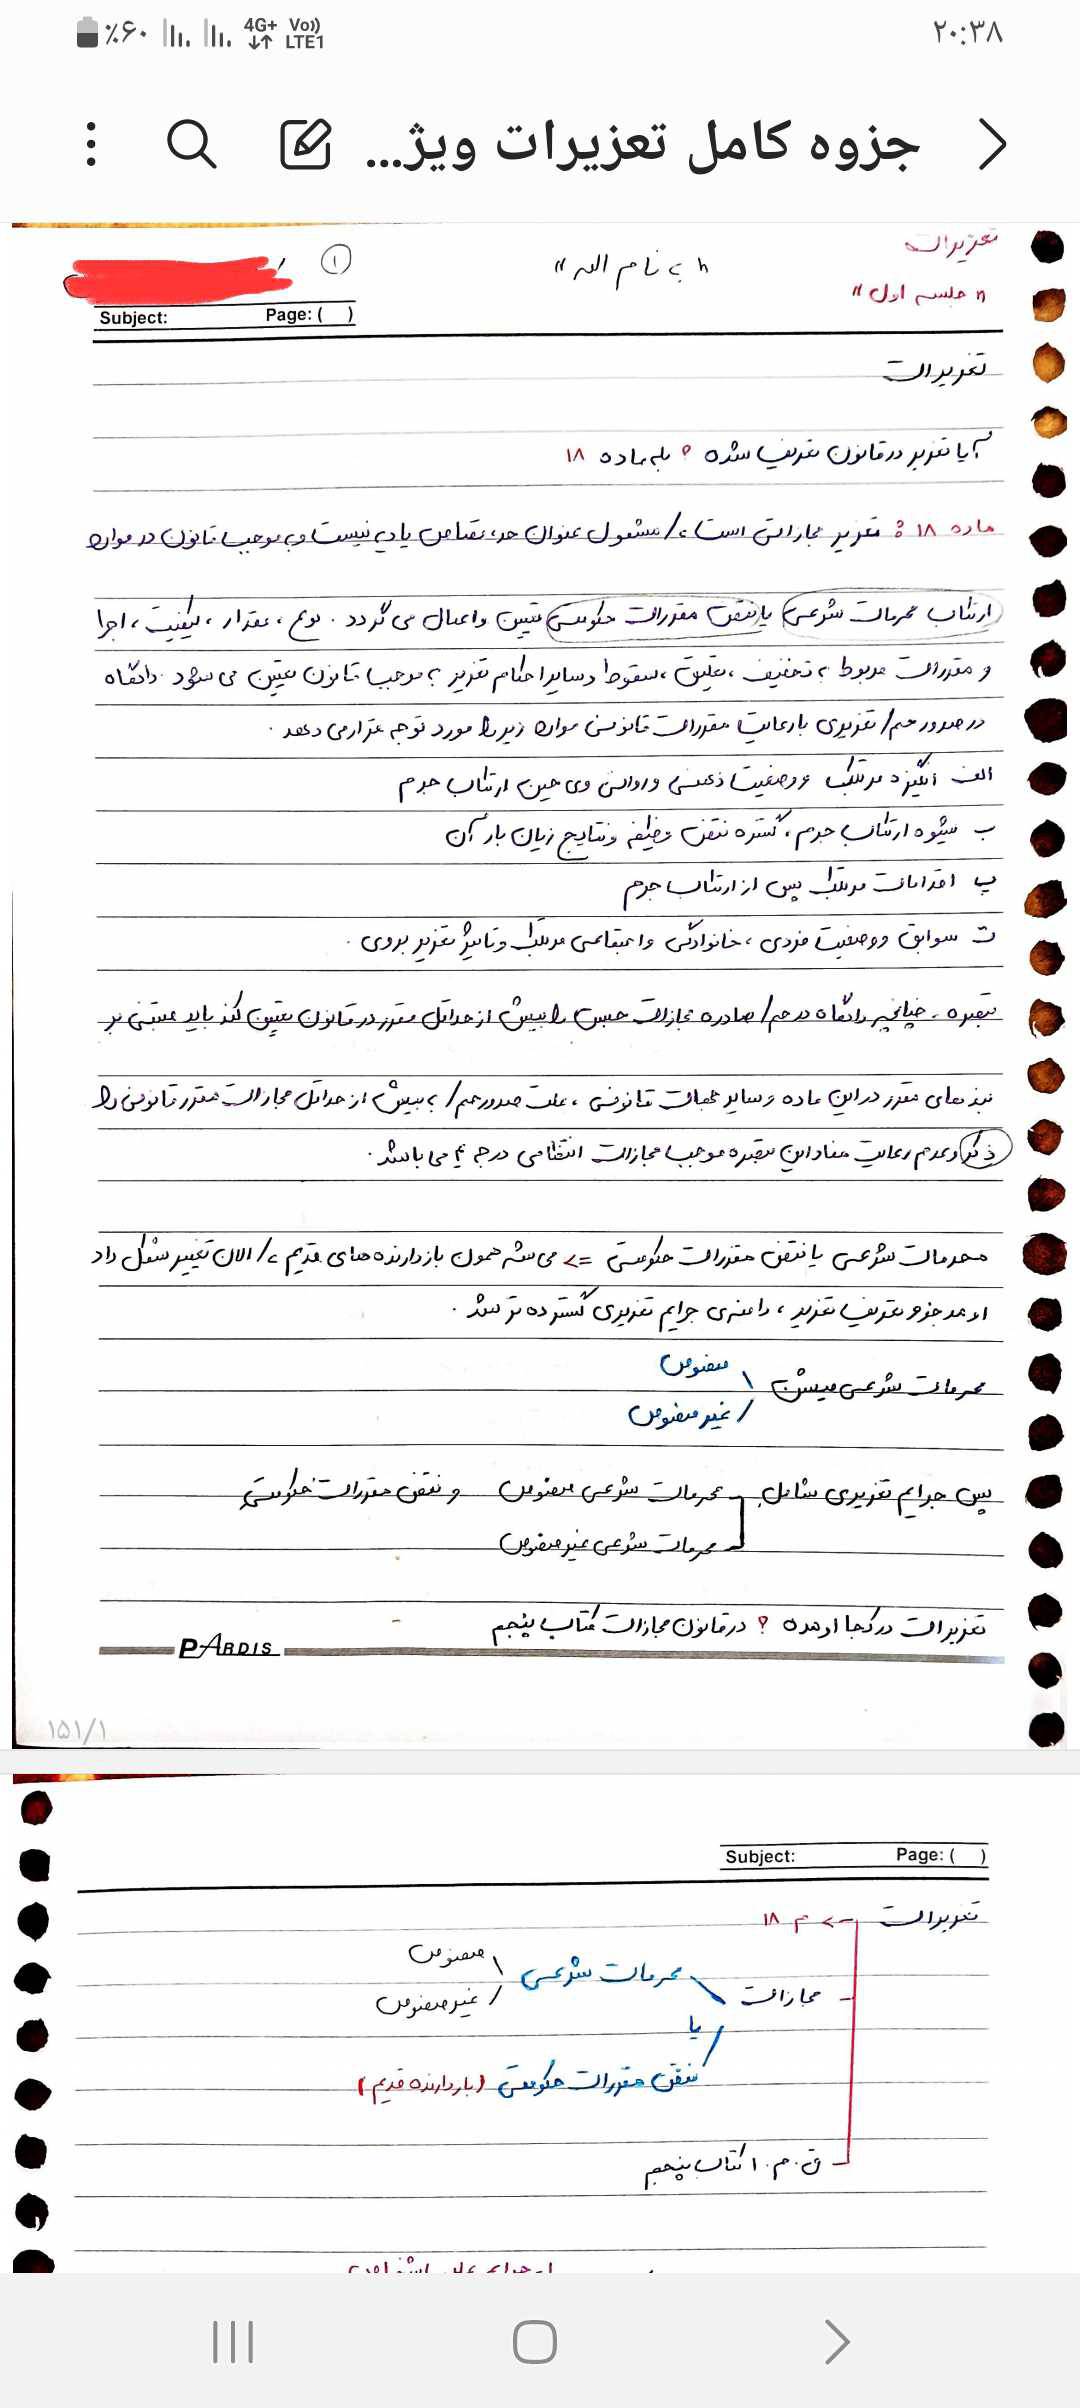 ٪۶۰ 4G+ Vo)) LTE1 ۲۰:۳۸
جزوه کامل تعزیرات ویژ...
تعزیرات
" جلسه اول "
" به نام الله "
۱
Subject: Page: ( )
تعزیرات
آیا تعزیر در قانون تعریف شده ؟ بله ماده ۱۸
ماده ۱۸ : تعزیر مجازاتی است که مشمول عنوان حد، قصاص یا دیه نیست و به موجب قانون در موارد
ارتکاب محرمات شرعی یا نقض مقررات حکومتی تعیین و اعمال می گردد . نوع ، مقدار ، کیفیت ، اجرا
و مقررات مربوط به تخفیف ، تعلیق ، سقوط و سایر احکام تعزیر به موجب قانون تعیین می شود . دادگاه
در صدور حکم تعزیری با رعایت مقررات قانونی موارد زیر را مورد توجه قرار می دهد .
الف انگیزه مرتکب و وضعیت ذهنی و روانی وی حین ارتکاب جرم
ب شیوه ارتکاب جرم ، گستره نقض وظیفه و نتایج زیان بار آن
پ اقدامات مرتکب پس از ارتکاب جرم
ت سوابق و وضعیت فردی ، خانوادگی و اجتماعی مرتکب و تاثیر تعزیر بر وی .
تبصره . چنانچه دادگاه در حکم صادره مجازات حبس را بیش از حداقل مقرر در قانون تعیین کند باید مبتنی بر
بندهای مقرر در این ماده و سایر جهات قانونی ، علت صدور حکم به بیش از حداقل مجازات مقرر قانونی را
ذکر و عدم رعایت مفاد این تبصره موجب مجازات انتظامی درجه ۴ می باشد .
محرمات شرعی یا نقض مقررات حکومتی => می شه همون بازدارنده های قدیم که الان تغییر شکل داد
اومد جزو تعریف تعزیر ، دامنه ی جرایم تعزیری گسترده تر شد .
محرمات شرعی میشن
منصوص
غیر منصوص
پس جرایم تعزیری شامل محرمات شرعی منصوص و نقض مقررات حکومتی
محرمات شرعی غیر منصوص
تعزیرات در کجا اومده ؟ در قانون مجازات کتاب پنجم
PARDIS
۱۵۱/۱
Subject: Page: ( )
تعزیرات -> م ۱۸
مجازات
محرمات شرعی
منصوص
غیر منصوص
یا
نقض مقررات حکومتی (بازدارنده قدیم)
ق . م . ا کتاب پنجم